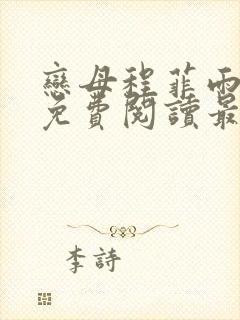 戀母程菲雨
免費閱讀最
李詩